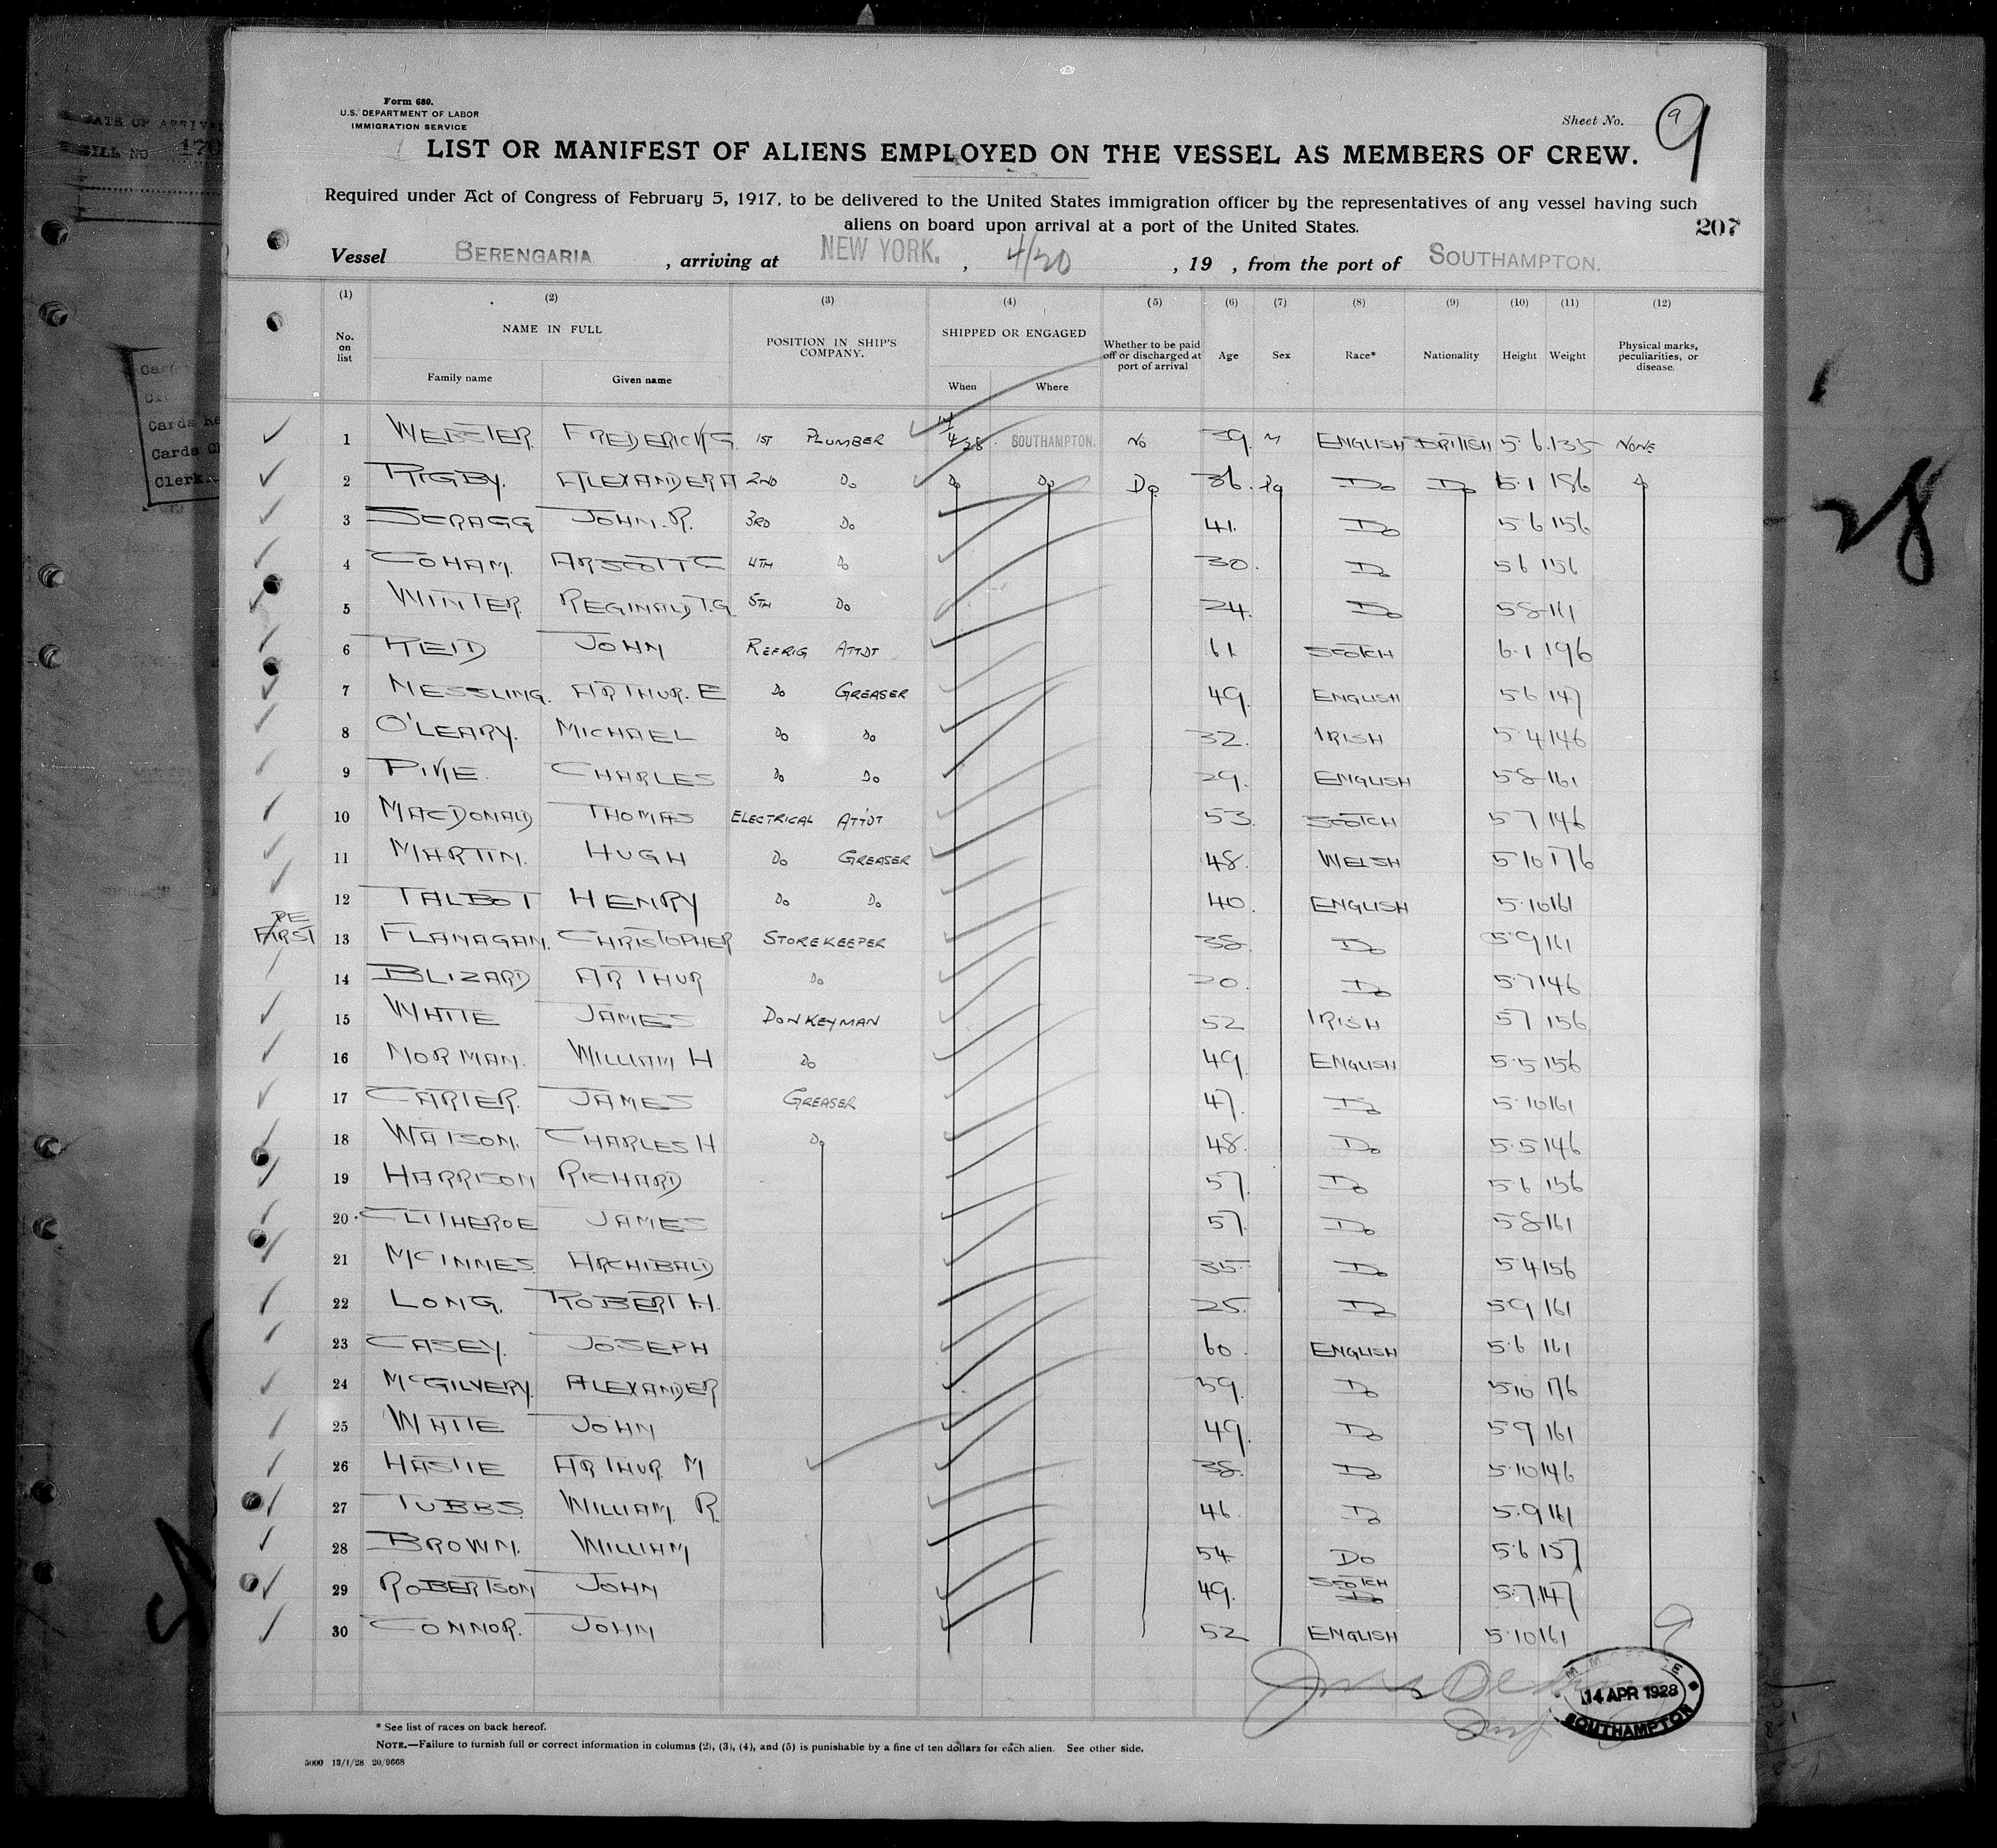 DATE OF ARRIVAL
BILL NO 170
Form 680.
U.S. DEPARTMENT OF LABOR
IMMIGRATION SERVICE
Sheet No. 9
9
LIST OR MANIFEST OF ALIENS EMPLOYED ON THE VESSEL AS MEMBERS OF CREW.
Required under Act of Congress of February 5, 1917, to be delivered to the United States immigration officer by the representatives of any vessel having such
aliens on board upon arrival at a port of the United States.
207
Vessel BERENGARIA , arriving at NEW YORK. , 4/20 , 19 , from the port of SOUTHAMPTON.
(1) (2) (3) (4) (5) (6) (7) (8) (9) (10) (11) (12)
No. on list NAME IN FULL Family name Given name POSITION IN SHIP'S COMPANY. SHIPPED OR ENGAGED When Where Whether to be paid off or discharged at port of arrival Age Sex Race* Nationality Height Weight Physical marks, peculiarities, or disease.
1 WEBSTER. FREDERICK G. 1ST PLUMBER 14/4/28. SOUTHAMPTON. NO 39. M ENGLISH BRITISH 5 6. 135 NONE
2 RIGBY. ALEXANDER A 2ND DO DO DO DO 36. DO DO DO 5.1 186 DO
3 SCRAGG JOHN. R. 3RD DO 41. DO 5 6 156
4 COHAM. ARSCOTT C 4TH DO 30. DO 5 6 156
5 WINTER. REGINALD T.G. 5TH DO 24. DO 5 8 161
6 REID JOHN REFRIG ATTDT 61 SCOTCH 6.1 196
7 MESSLING. ARTHUR. E DO GREASER 49. ENGLISH 5 6 147
8 O'LEARY. MICHAEL DO DO 32. IRISH 5.4 146
9 PIKE. CHARLES DO DO 29. ENGLISH 5 8 161
10 MACDONALD THOMAS ELECTRICAL ATTDT 53. SCOTCH 5 7 146
11 MARTIN. HUGH DO GREASER 48. WELSH 5 10 176
12 TALBOT HENRY DO DO 40. ENGLISH 5.10 161
13 FLANAGAN. CHRISTOPHER STOREKEEPER 38. DO 5.9 161
14 BLIZARD ARTHUR DO 20. DO 5.7 146
15 WHITE JAMES DONKEYMAN 52 IRISH 5 7 156
16 NORMAN. WILLIAM H DO 49. ENGLISH 5.5 156
17 CARTER. JAMES GREASER 47. DO 5.10 161
18 WATSON. CHARLES H DO 48. DO 5.5 146
19 HARRISON RICHARD 57. DO 5.6 156
20. CLITHEROE JAMES 57. DO 5 8 161
21 McINNES ARCHIBALD 35. DO 5.4 156
22 LONG. ROBERT H. 25. DO 5 9 161
23 CASEY. JOSEPH 60. ENGLISH 5.6 161
24 McGILVERY. ALEXANDER 59. DO 5 10 176
25 WHITE JOHN 49. DO 5 9 161
26 HASTIE ARTHUR M 38. DO 5.10 146
27 TUBBS. WILLIAM. R. 46. DO 5.9 161
28 BROWN. WILLIAM 54 DO 5.6 157
29 ROBERTSON JOHN 49. SCOTCH DO 5.7 147
30 CONNOR. JOHN 52 ENGLISH 5.10 161
28
14 APR 1928
SOUTHAMPTON
* See list of races on back hereof.
NOTE.—Failure to furnish full or correct information in columns (2), (3), (4), and (5) is punishable by a fine of ten dollars for each alien. See other side.
5000 13/1/28 20/9668